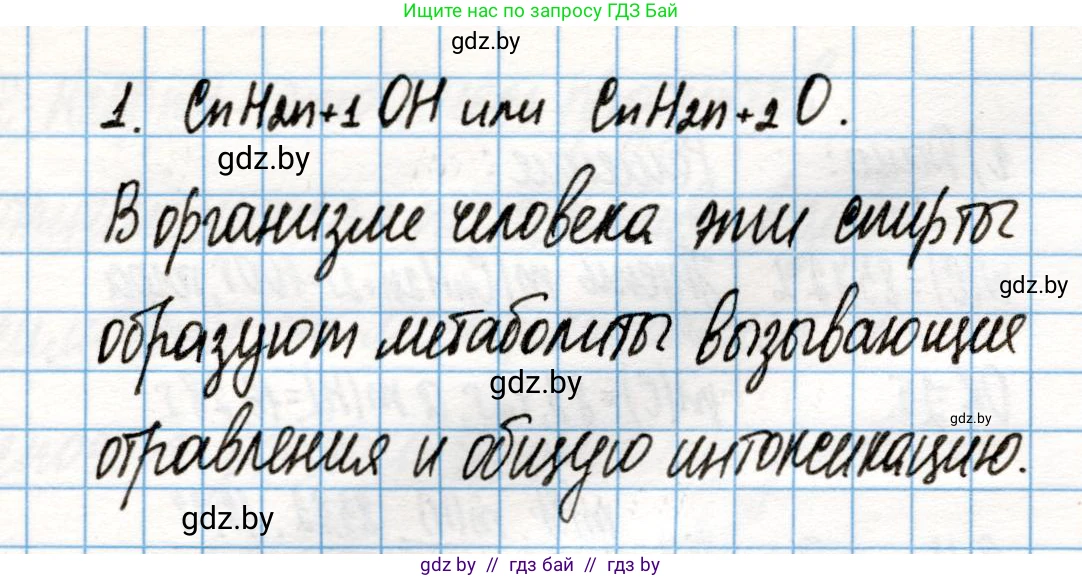 Ищите нас по запросу ГДЗ Бай
gdz.by
1. CnH2n+1 OH или CnH2n+2 O.
gdz.by
В организме человека эти спирты
gdz.by
образуют метаболиты вызывающие
gdz.by
gdz.by
отравления и общую интоксикацию.
gdz.by
gdz.by // гдз бай // gdz.by